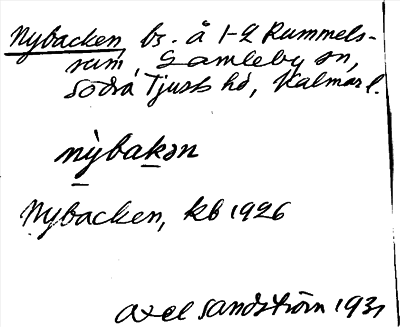 Nybacken bs. å 1-2 Rummels-
rum, Gamleby sn,
Södra Tjusts hd, Kalmar l.
nỳbakən
Nybacken, kb 1926
Axel Sandström 1931